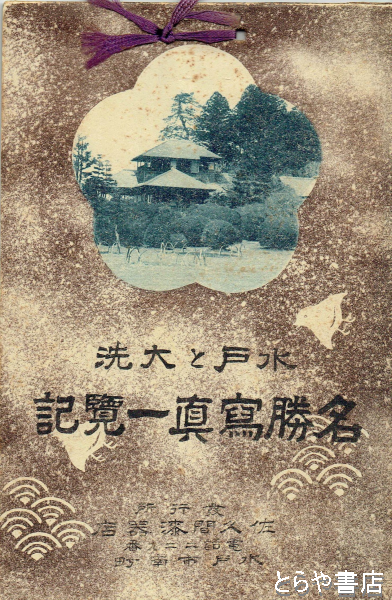 水戸と大洗
名勝寫真一覽記
發行所
佐久間漆器店
電話二二九番
水戸市南町
とらや書店